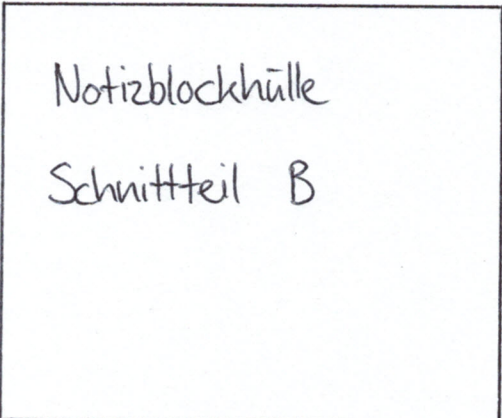 Notizblockhülle
Schnittteil B